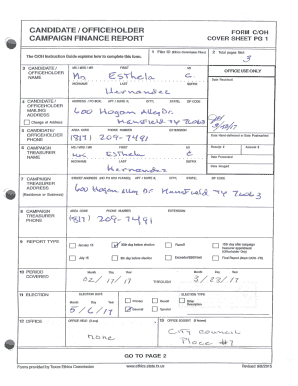 CANDIDATE / OFFICEHOLDER FORM C/OH
CAMPAIGN FINANCE REPORT COVER SHEET PG 1
The C/OH Instruction Guide explains how to complete this form.
1 Filer ID (Ethics Commission Filers) 2 Total pages filed:
3
3 CANDIDATE / OFFICEHOLDER NAME
MS / MRS / MR FIRST MI
Esthela C
NICKNAME LAST SUFFIX
Hernandez
OFFICE USE ONLY
Date Received
4 CANDIDATE / OFFICEHOLDER MAILING ADDRESS
Change of Address
ADDRESS / PO BOX; APT / SUITE #; CITY; STATE; ZIP CODE
600 Hogan Alley Dr.
Mansfield TX 76063
5 CANDIDATE/ OFFICEHOLDER PHONE
AREA CODE PHONE NUMBER EXTENSION
(817) 209-7491
Date Hand-delivered or Date Postmarked
6 CAMPAIGN TREASURER NAME
MS / MRS / MR FIRST MI
Esthela C
NICKNAME LAST SUFFIX
Hernandez
Receipt # Amount $
Date Processed
Date Imaged
7 CAMPAIGN TREASURER ADDRESS
(Residence or Business)
STREET ADDRESS (NO PO BOX PLEASE); APT / SUITE #; CITY; STATE; ZIP CODE
600 Hogan Alley Dr. Mansfield TX 76063
8 CAMPAIGN TREASURER PHONE
AREA CODE PHONE NUMBER EXTENSION
(817) 209-7491
9 REPORT TYPE
January 15 30th day before election Runoff 15th day after campaign treasurer appointment (Officeholder Only)
July 15 8th day before election Exceeded $500 limit Final Report (Attach C/OH - FR)
10 PERIOD COVERED
Month Day Year Month Day Year
02/17/17 THROUGH 3/23/17
11 ELECTION
ELECTION DATE ELECTION TYPE
Month Day Year Primary Runoff Other Description
5/6/17 General Special
12 OFFICE OFFICE HELD (if any) 13 OFFICE SOUGHT (if known)
none City Council
Place #7
GO TO PAGE 2
Forms provided by Texas Ethics Commission www.ethics.state.tx.us Revised 9/8/2015